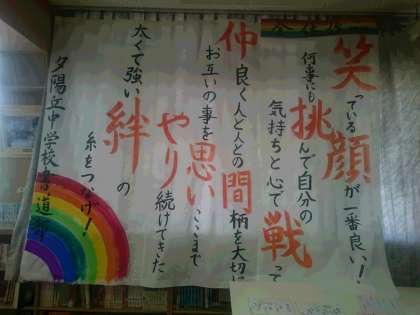 笑っている顔が一番良い！
何事にも挑んで自分の
気持ちと心で戦って
仲良く人と人との間柄を大切に
お互いの事を思いここまで
やり続けてきた
太くて強い絆の
糸をつなげ！
夕陽丘中学校書道部